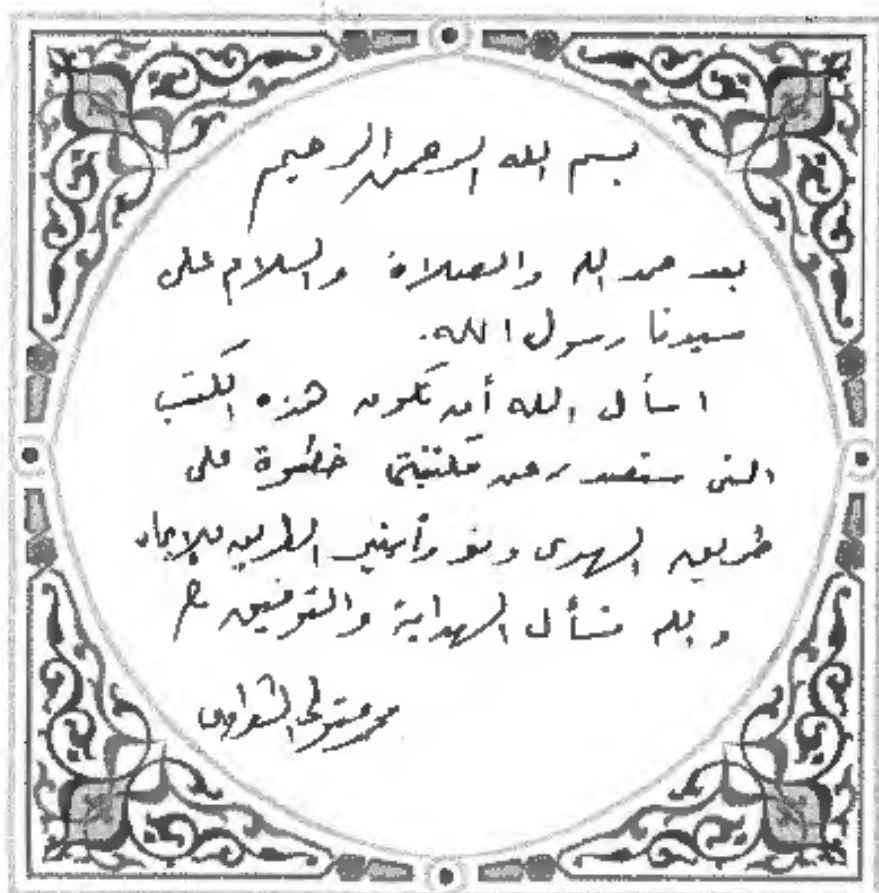 بسم الله الرحمن الرحيم
بعد حمد الله والصلاة والسلام على
سيدنا رسول الله.
اسأل الله أن تكون هذه الكتب
التى ستصدر عن مكتبتى خطوة على
طريق الهدى ونوراً ينير الطريق للإيمان
ولله نسأل الهداية والتوفيق
محمد متولى الشعراوى